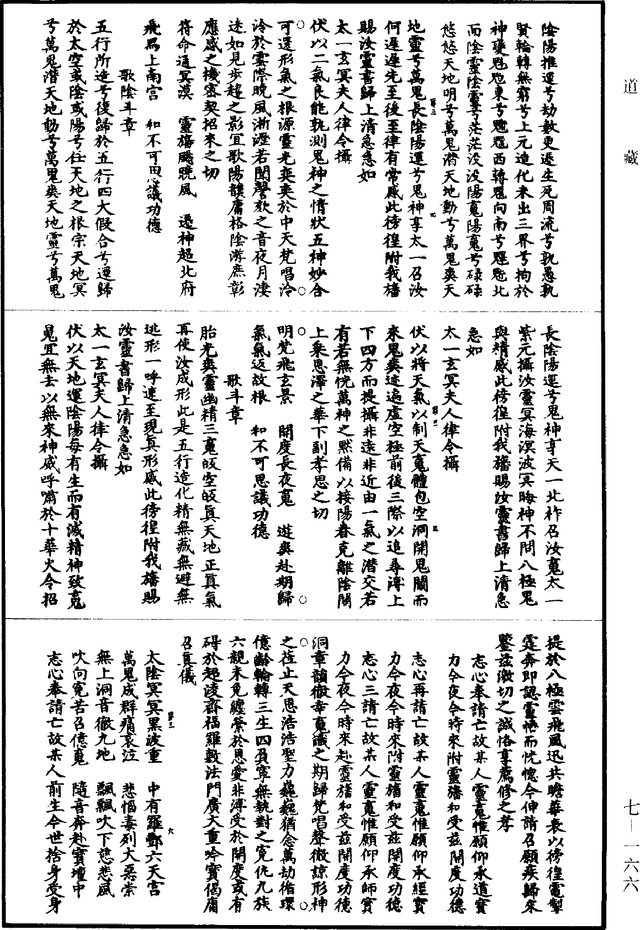 道藏
陰陽推遷兮劫數更遷生死周流兮孰愚孰
賢輪轉無窮兮上元造化未出三界兮拘於
神變魍魎東兮魍魎西轉魍向南兮魍魎北
而陰靈陰靈兮茫茫沒沒陽䰟陽䰟兮碌碌
悠悠天地明兮萬鬼潛天地動兮萬鬼奭天
地靈兮萬鬼長陰陽運兮鬼神享太一召汝
何遲遲先至後至律有常感此徬徨附我旛
賜汝靈書歸上清急急如
太一玄冥夫人律令攝
伏以二氣良能孰測鬼神之情狀五神妙合
可還形氣之根源靈光奕奕於中天梵唱泠
泠於雲際晚風淅瀝若聞謦欬之音夜月淒
迷如見步趨之影宜歌陽韻庸格陰游庶彰
應感之機密契招來之切
符命通冥漠　靈旛颺晚風　遷神超北府
飛舄上南宮　和不可思議功德
歌陰斗章
五行所造兮復歸於五行四大假合兮還歸
於太空或陰或陽兮任天地之根宗天地冥
兮萬鬼潛天地動兮萬鬼奭天地靈兮萬鬼
長陰陽運兮鬼神享天一北祚召汝䰟太一
紫元攝汝靈冥海溟波冥晦神不問八極鬼
與精感此徬徨附我旛賜汝靈書歸上清急
急如
太一玄冥夫人律令攝
伏以將天氣以制天䰟體包空洞開鬼關而
來鬼爽迹遍虛空極前後三際以追尋溥上
下四方而提攝非遠非近由一氣之潛交若
有若無恍萬神之黙備以接陽春克離陰關
上桒恩澤之華下副孝思之切
明梵飛玄景　開度長夜䰟　遊爽赴期歸
氣氣返故根　和不可思議功德
歌斗章
胎光爽靈幽精三䰟皎空皎真天地正真氣
再使汝成形此是五行造化精無藏無避無
逃形一呼速至現真形感此徬徨附我旛賜
汝靈書歸上清急急如
太一玄冥夫人律令攝
伏以天地運陰陽每有生而有滅精神致䰟
鬼宜無去以無來神威呼嘯於十華火令招
提於八極雲飛風迅共瞻華表以徬徨電掣
霆奔即認靈旛而恍惚今伸請召願疾歸來
鑒茲激切之誠恪享薦修之孝
志心奉請亡故某人靈䰟惟願仰承道寶
力今夜今時來附靈旛和受茲開度功德
志心再請亡故某人靈䰟惟願仰承經寶
力今夜今時來附靈旛和受茲開度功德
志心三請亡故某人靈䰟惟願仰承師寶
力今夜今時來赴靈旛和受茲開度功德
洞章韻徹幸䰟識之期歸梵唱聲微諒形神
之莅止天恩浩浩聖力巍巍猶念萬劫循環
億齡輪轉三生四負寧無執對之冤仇九族
六親未免纏縈於恩愛非溥受於開度或有
礙於超凌齋福羅敷法門廣大重吟寶偈庸
召真儀
太陰冥冥黑波重　中有羅酆六天宮
萬鬼成群痛哀泣　悲惱毒列大桒崇
無上洞音徹九地　飄飄吹下慈悲風
吹向冤苦召億䰟　隨音奔赴寶壇中
志心奉請亡故某人前生今世捨身受身
七—一六六